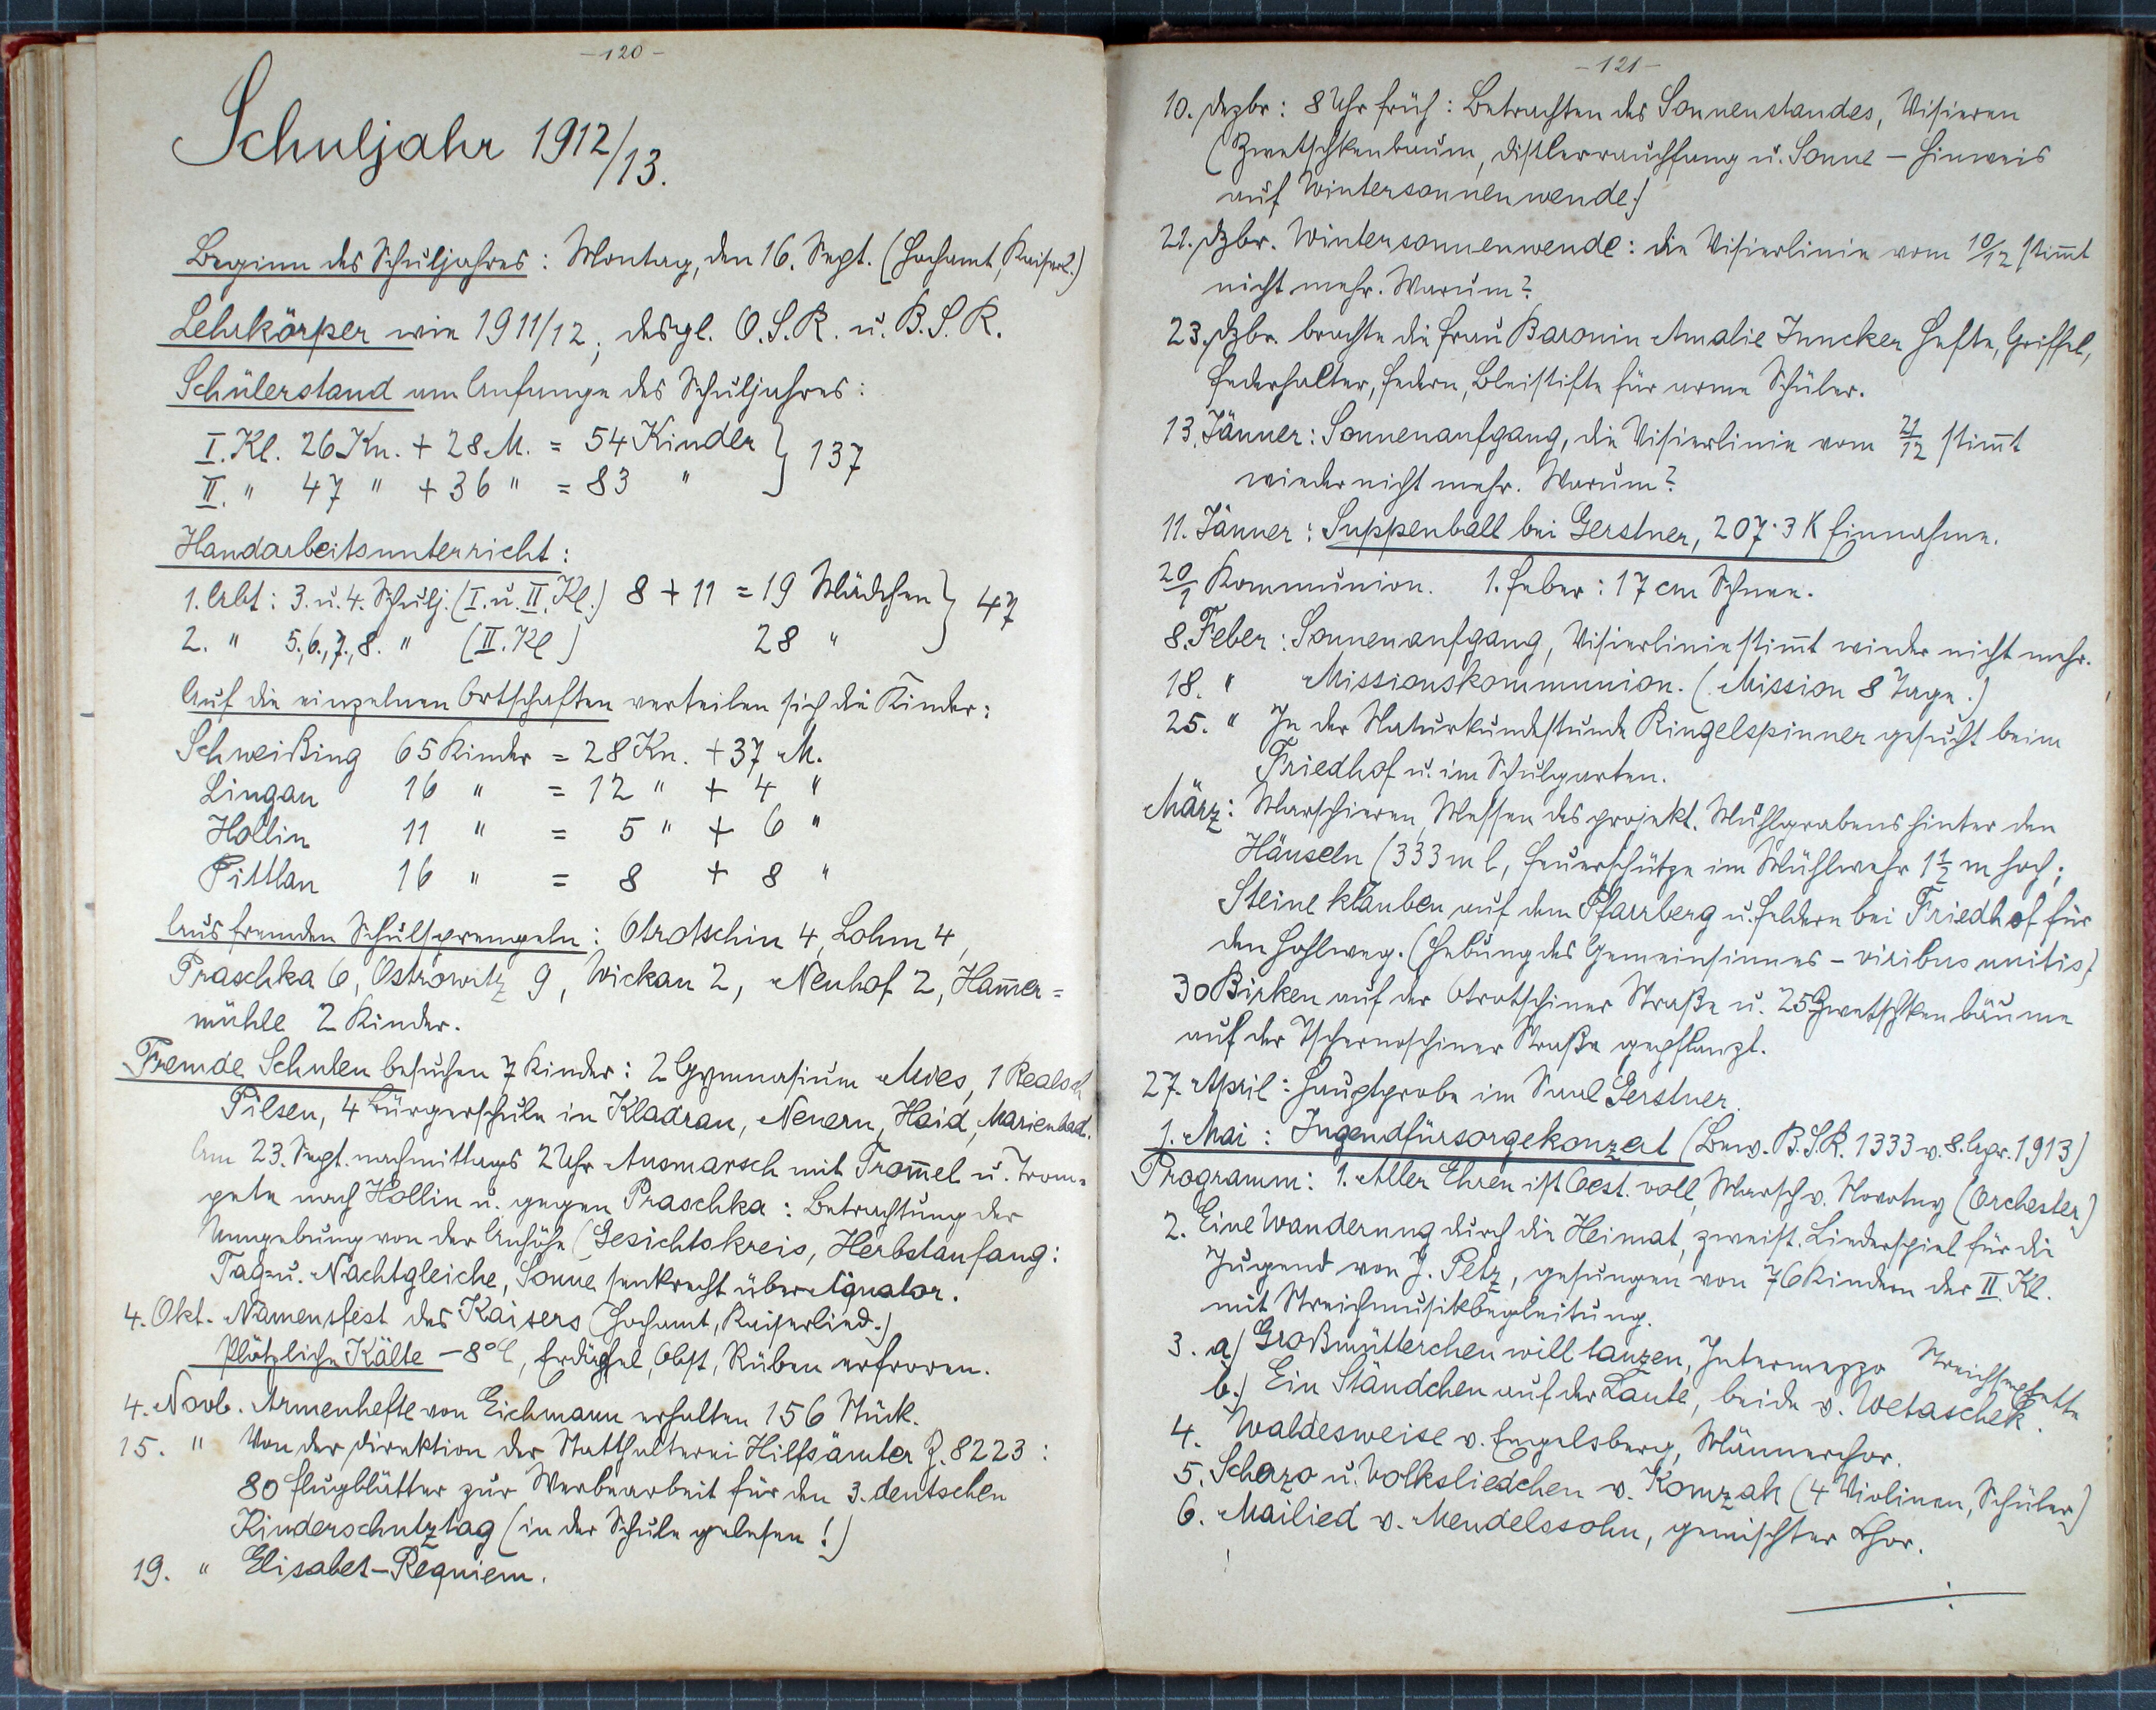 - 120 -
Schuljahr 1912/13.
Beginn des Schuljahres: Montag, den 16. Sept. (Hochamt, Kaiserl.)
Lehrkörper wie 1911/12, desgl. O.S.R. u. B.S.R.
Schülerstand am Anfange des Schuljahres:
I. Kl. 26 Kn. + 28 M. = 54 Kinder } 137
II. " 47 " + 36 " = 83 "
Handarbeitsunterricht:
1. Abt: 3. u. 4. Schulj. (I. u. II. Kl.) 8 + 11 = 19 Mädchen } 47
2. " 5., 6., 7., 8. " (II. Kl) 28 "
Auf die einzelnen Ortschaften verteilen sich die Kinder:
Schweißing 65 Kinder = 28 Kn. + 37 M.
Lingau 16 " = 12 " + 4 "
Hollin 11 " = 5 " + 6 "
Pittlau 16 " = 8 + 8 "
Aus fremden Schulsprengeln: Otrotschin 4, Lohm 4,
Praschka 6, Ostrowitz 9, Wickau 2, Neuhof 2, Ham̅er=
mühle 2 Kinder.
Fremde Schulen besuchen 7 Kinder: 2 Gymnasium Mies, 1 Realsch
Pilsen, 4 Bürgerschule in Kladrau, Neuern, Haid, Marienbad.
Am 23. Sept. nachmittags 2 Uhr Ausmarsch mit Trom̅el u. Trom=
pete nach Hollin u. gegen Praschka: Betrachtung der
Umgebung von der Anhöhe (Gesichtskreis, Herbstanfang:
Tag- u. Nachtgleiche, Sonne senkrecht über Äquator.
4. Okt. Namensfest des Kaisers (Hochamt, Kaiserlied.)
Plötzliche Kälte -8°C, Erdäpfel, Obst, Rüben erfroren.
4. Novb. Armenhefte von Eichmann erhalten 156 Stück.
15. " Von der Direktion der Statthalterei Hilfsämter Z. 8223:
80 Flugblätter zur Werbearbeit für den 3. deutschen
Kinderschutztag (in der Schule gelesen!)
19. " Elisabet-Requiem.
- 121 -
10. Dezbr: 8 Uhr früh: Betrachten des Sonnenstandes, Visieren
(Zwetschkenbaum, Distlerrauchfang u. Sonne - Hinweis
auf Wintersonnenwende.)
22. Dzbr. Wintersonnenwende: die Visierlinie vom 10/12 stim̅t
nicht mehr. Warum?
23. Dzbr. brachte die Frau Baronin Amalie Juncker Hefte, Griffel,
Federhalter, Federn, Bleistifte für arme Schüler.
13. Jänner: Sonnenaufgang, die Visierlinie vom 21/12 stim̅t
wieder nicht mehr. Warum?
11. Jänner: Suppenball bei Gerstner, 207·3 K Einnahme.
20/1 Kommunion. 1. Feber: 17 cm Schnee.
8. Feber: Sonnenaufgang, Visierlinie stim̅t wieder nicht mehr.
18. " Missionskommunion. (Mission 8 Tage.)
25. " In der Naturkundestunde Ringelspinner gesucht beim
Friedhof u. im Schulgarten.
März: Marschieren, Messen des projekt. Mühlgrabens hinter den
Häuseln (333 m l, Feuerschütze im Mühlwehr 1½ m hoch;
Steine klauben auf dem Pfarrberg u. Feldern bei Friedhof für
den Hohlweg. (Hebung des Gemeinsinnes - viribus unitis)
30 Birken auf der Otrotschiner Straße u. 25 Zwetschkenbäume
auf der Tschernoschiner Straße gepflanzt.
27. April: Hauptprobe im Saal Gerstner.
1. Mai: Jugendfürsorgekonzert (Bew. B.S.R. 1333 v. 8. Apr. 1913)
Programm: 1. Aller Ehren ist Oest. voll, Marsch v. Novotny (Orchester)
2. Eine Wanderung durch die Heimat, zweist. Liederspiel für die
Jugend von J. Petz, gesungen von 76 Kindern der II. Kl.
mit Streichmusikbegleitung.
3. a) Großmütterchen will tanzen, Intermezzo
b.) Ein Ständchen auf der Laute, beide v. Wetaschek.
4. Waldesweise v. Engelsberg, Männerchor.
5. Scherzo u. Volksliedchen v. Komzak (4 Violinen, Schüler)
6. Mailied v. Mendelssohn, gemischter Chor.